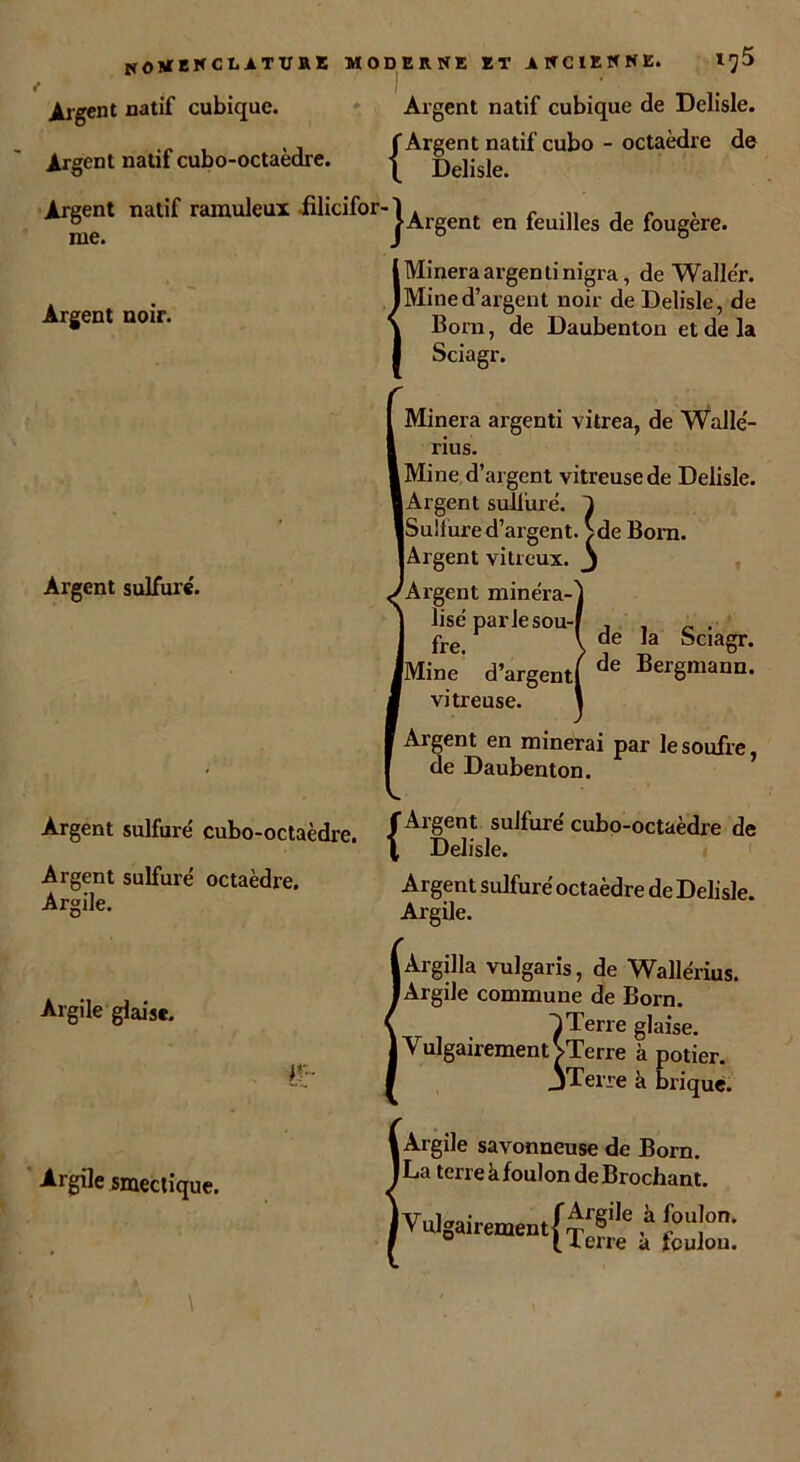 NOMENCLATURE MODERNE ET ANCIENNE. 175
Argent natif cubique. Argent natif cubique de Delisle.
Argent natif cubo-octaèdre. { Argent natif cubo - octaèdre de
Delisle.
Argent natif ramuleux filicifor-
me. } Argent en feuilles de fougère.
Argent noir.
Minera argenti nigra, de Wallér.
Mine d'argent noir de Delisle, de
Born, de Daubenton et de la
Sciagr.
Argent sulfuré.
Minera argenti vitrea, de Wallé-
rius.
Mine d'argent vitreuse de Delisle.
Argent sulfuré.
Sulfure d'argent. } de Born.
Argent vitreux.
Argent minéra-
lisé par le sou-
fre. de la Sciagr.
Mine d'argent de Bergmann.
vitreuse.
Argent en minerai par le soufre,
de Daubenton.
Argent sulfuré cubo-octaèdre. { Argent sulfuré cubo-octaèdre de
Delisle.
Argent sulfuré octaèdre. Argent sulfuré octaèdre de Delisle.
Argile. Argile.
Argile glaise.
Argilla vulgaris, de Wallérius.
Argile commune de Born.
Terre glaise.
Vulgairement } Terre à potier.
Terre à brique.
Argile smectique.
Argile savonneuse de Born.
La terre à foulon de Brochant.
Vulgairement { Argile à foulon.
Terre à foulon.